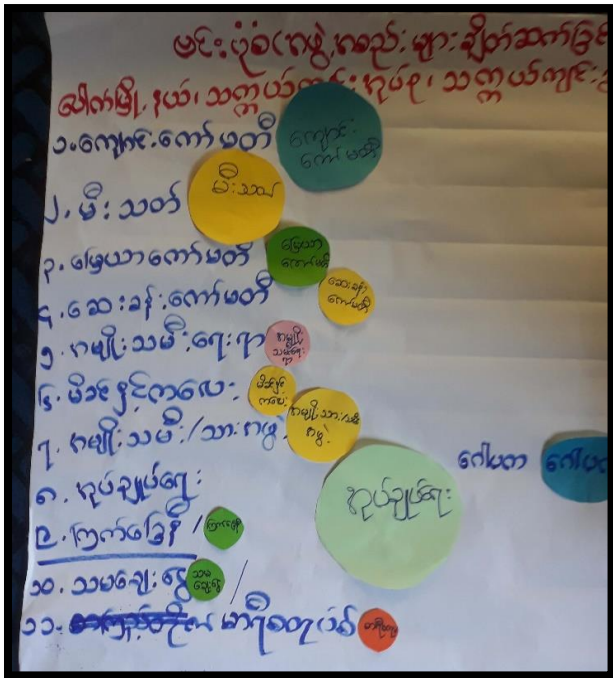 မင်းပုံစံ(အဖွဲ့အစည်းများချိတ်ဆက်ခြင်
လောက်မြို့နယ်၊ သက္ကယ်ကျင်းအုပ်စု၊ သက္ကယ်ကျင်း
၁.ကျောင်းကော်မတီ ကျောင်းကော်မတီ
၂. မီးသတ် မီးသတ်
၃. မြေယာကော်မတီ မြေယာကော်မတီ
၄. ဆေးခန်းကော်မတီ ဆေးခန်းကော်မတီ
၅. အမျိုးသမီးရေးရာ အမျိုးသမီးရေးရာ
၆. မိခင်နှင့်ကလေး မိခင်နှင့်ကလေး
၇. အမျိုးသမီး/သားအဖွဲ့ အမျိုးသား/သမီးအဖွဲ့
၈. အုပ်ချုပ်ရေး အုပ်ချုပ်ရေး ဂေါပက ဂေါပက
၉. ကြက်ခြေနီ / ကြက်ခြေနီ
၁၀. သမချေးငွေ သမချေးငွေ /
၁၁.